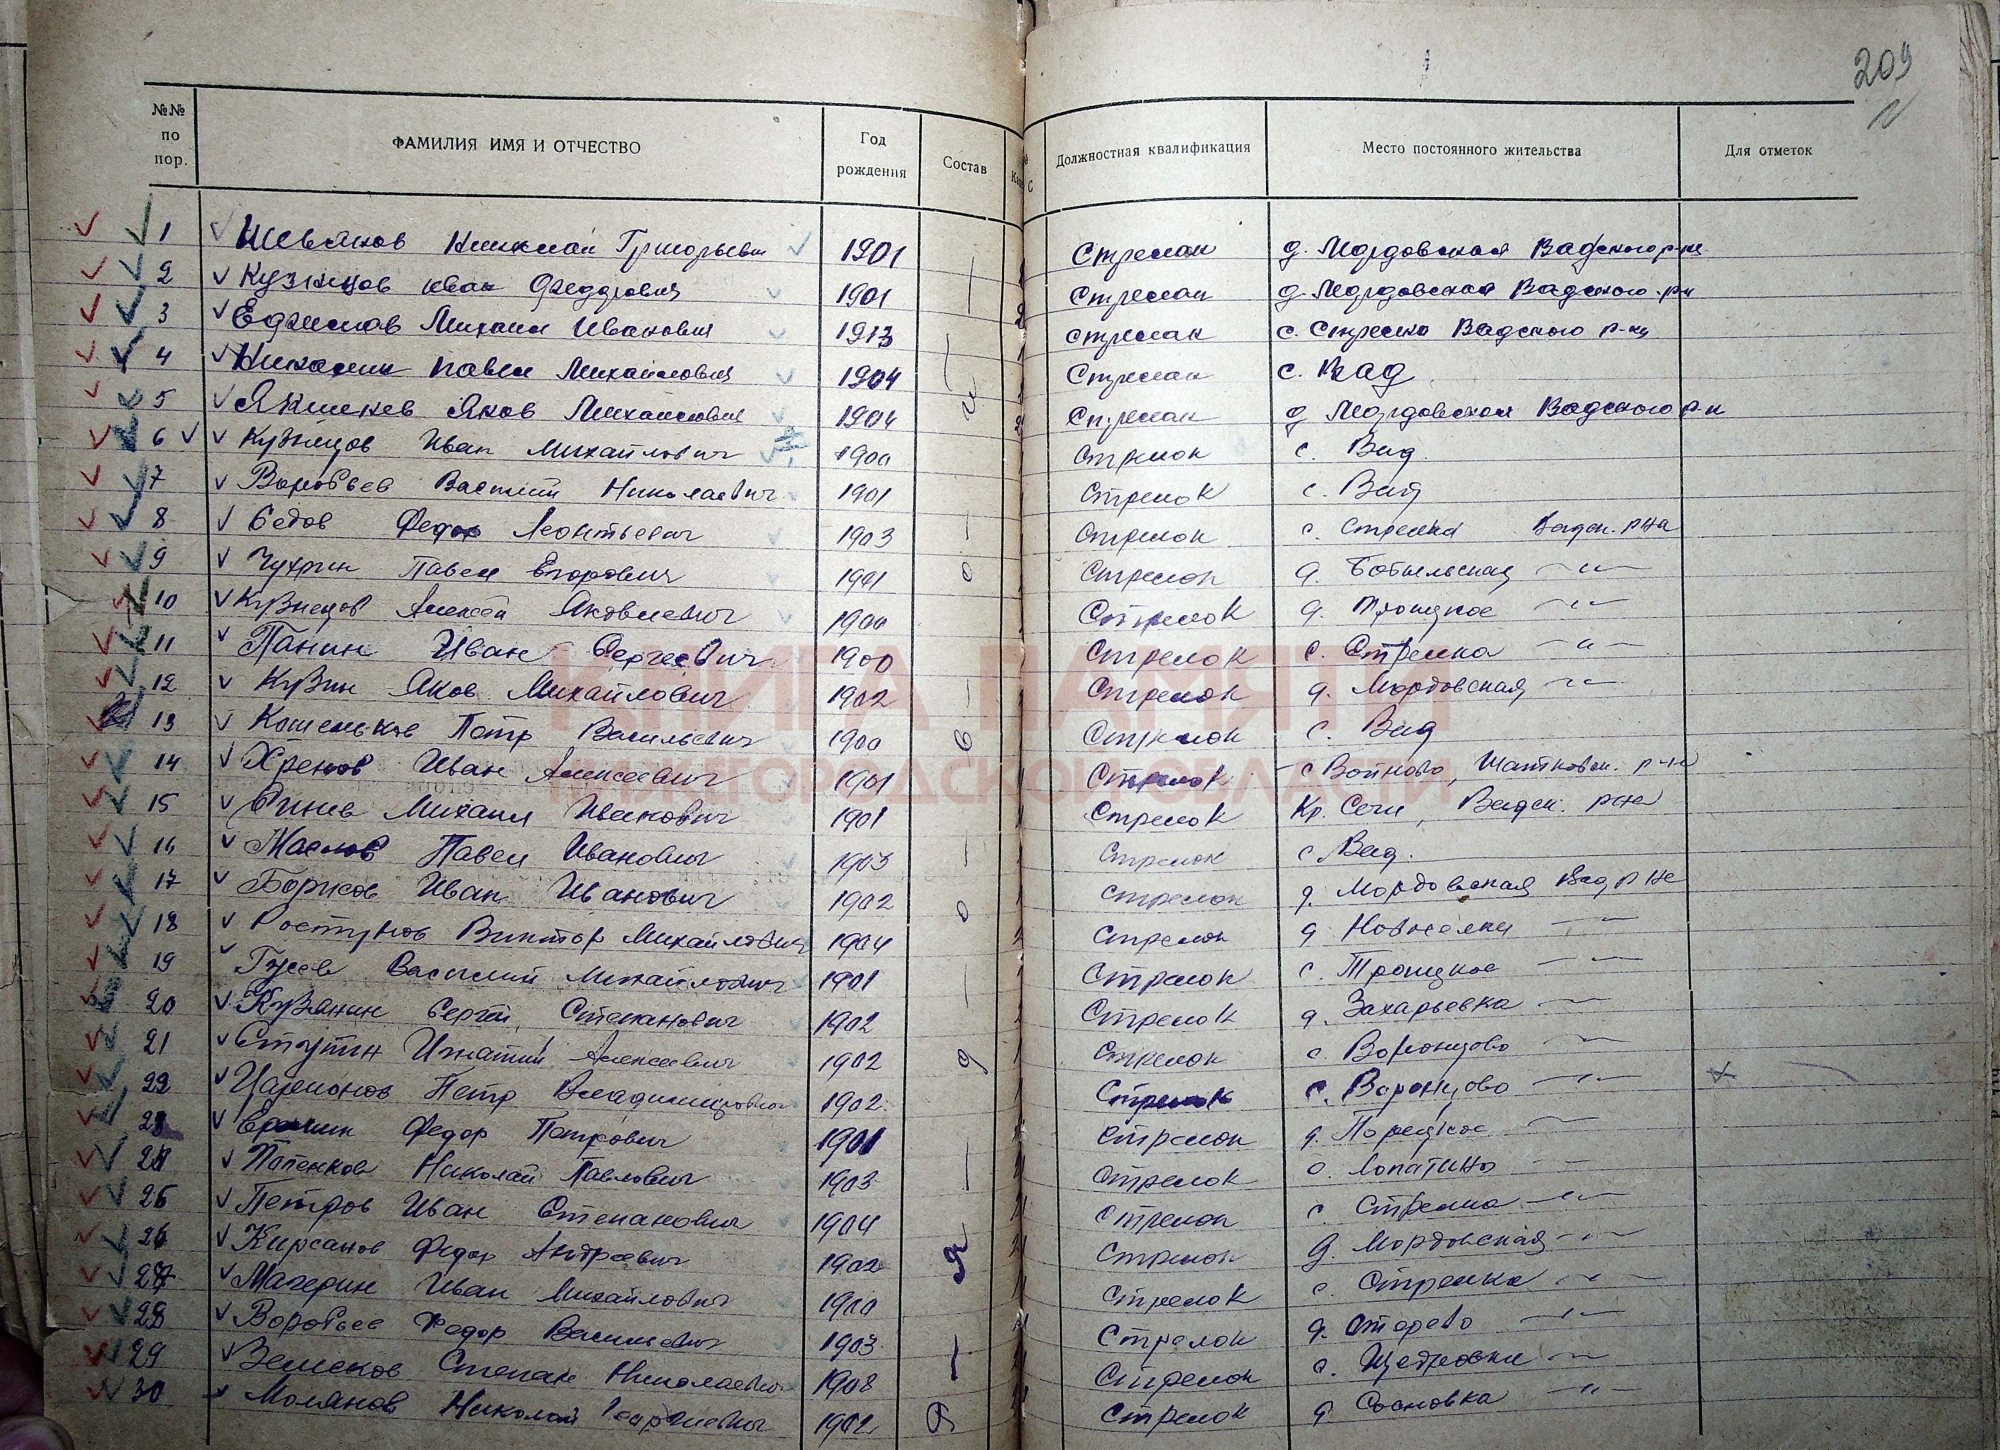 209
№№ по пор. ФАМИЛИЯ ИМЯ И ОТЧЕСТВО Год рождения Состав Должностная квалификация Место постоянного жительства Для отметок
1 Николай Григорьевич 1901 Стрелок д. Мордовская Вадского р-на
2 Кузнецов Иван Федорович 1901 Стрелок д. Мордовская Вадского р-н
3 Михаил Иванович 1913 стрелок с. Стрелка Вадского р-на
4 Павел Михайлович 1904 Стрелок с. Вад
5 Яков Михайлович 1904 Стрелок д Мордовская Вадского р-н
6 Кузнецов Иван Михайлович 1900 Стрелок с. Вад.
7 Воробьев Василий Николаевич 1901 Стрелок с. Вад
8 Седов Федор Леонтьевич 1903 Стрелок с. Стрелка Вадск. р-на
9 Чухрин Павел Егорович 1901 Стрелок д. Бобыльская —"—
10 Кузнецов Алексей Яковлевич 1900 Стрелок д. Троицкое —"—
11 Панин Иван Сергеевич 1900 Стрелок с. Стрелка —"—
12 Кузин Яков Михайлович 1902 Стрелок д. Мордовская —"—
13 Кошельков Петр Васильевич 1900 Стрелок с. Вад
14 Хренов Иван Алексеевич 1901 Стрелок с Войново, Шатковск. р-н
15 Михаил Иванович 1901 Стрелок Кр. Сечи, Вадск. р-на
16 Маслов Павел Иванович 1903 Стрелок с. Вад.
17 Борисов Иван Иванович 1902 Стрелок д. Мордовская Вад р-не
18 Ростунов Виктор Михайлович 1904 Стрелок д Новоселки —"—
19 Гусев Василий Михайлович 1901 Стрелок с. Троицкое —"—
20 Кузянин Сергей Степанович 1902 Стрелок д. Захарьевка —"—
21 Игнатий Алексеевич 1902 Стрелок с. Воронцово —"—
22 Петр Владимирович 1902 Стрелок с. Воронцово —"—
23 Федор Петрович 1901 Стрелок д. —"—
24 Папенков Николай Павлович 1903 Стрелок с. Лопатино —"—
25 Петров Иван Степанович 1904 Стрелок с. Стрелка —"—
26 Кирсанов Федор Андреевич 1902 Стрелок д. Мордовская —"—
27 Материн Иван Михайлович 1900 Стрелок с. Стрелка —"—
28 Воробьев Федор Васильевич 1903 Стрелок д. —"—
29 Земсков Степан Николаевич 1908 Стрелок с. Щедровка —"—
30 Молянов Николай Георгиевич 1902 Стрелок д. Сосновка —"—
КНИГА ПАМЯТИ
НИЖЕГОРОДСКОЙ ОБЛАСТИ